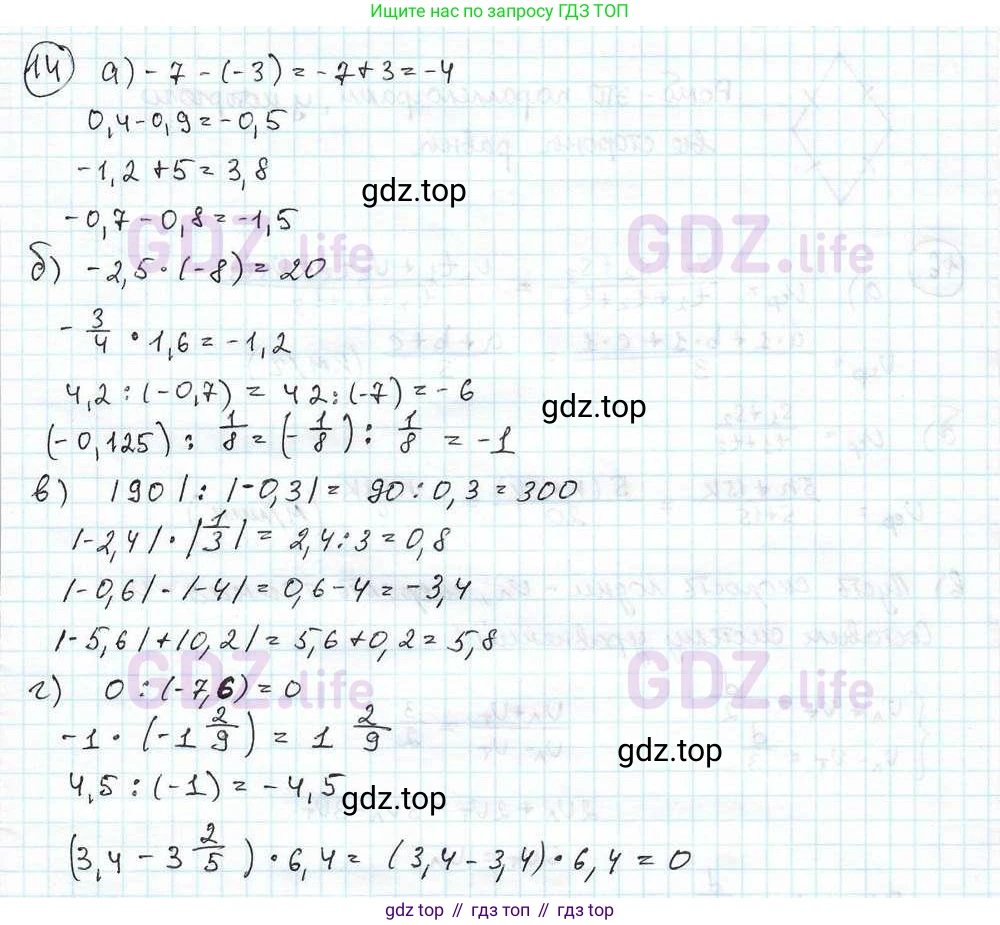 Ищите нас по запросу ГДЗ ТОП
14 а) -7-(-3)=-7+3=-4
0,4-0,9=-0,5
-1,2+5=3,8
gdz.top
-0,7-0,8=-1,5
GDZ.life GDZ.life
б) -2,5·(-8)=20
-3/4·1,6=-1,2
4,2:(-0,7)=42:(-7)=-6
gdz.top
(-0,125):1/8=(-1/8):1/8=-1
в) |90|:|-0,3|=90:0,3=300
|-2,4|·|1/3|=2,4:3=0,8
|-0,6|-|-4|=0,6-4=-3,4
|-5,6|+|0,2|=5,6+0,2=5,8
GDZ.life GDZ.life
г) 0:(-7,6)=0
-1·(-1 2/9)=1 2/9
gdz.top
4,5:(-1)=-4,5
gdz.top
(3,4-3 2/5)·6,4=(3,4-3,4)·6,4=0
gdz top // гдз топ // gdz top